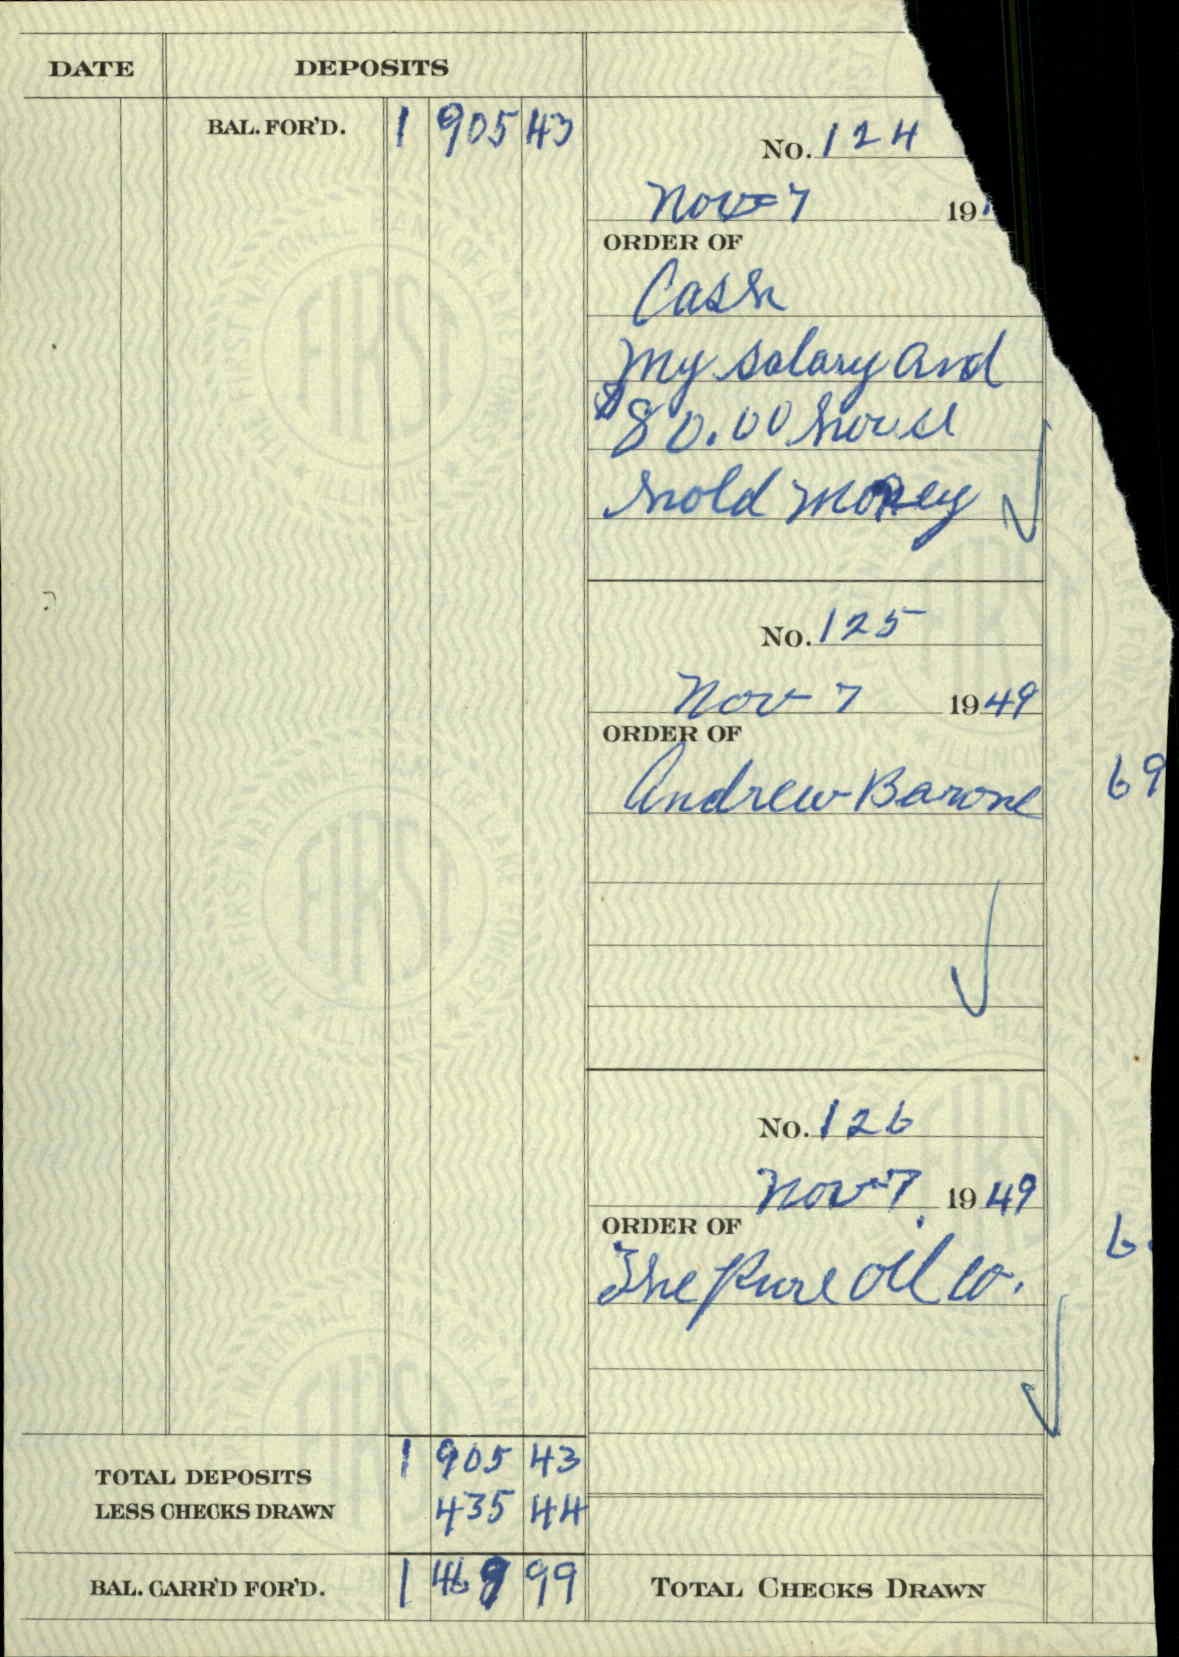 DATE DEPOSITS
BAL. FOR'D. 1 905 43
No. 124
Nov 7 19
ORDER OF
Cash
My salary and
$80.00 house
hold money
No. 125
Nov 7 1949
ORDER OF
Andrew Barone 69
No. 126
Nov 7, 1949
ORDER OF
The Pure Oil Co. 6
TOTAL DEPOSITS 1 905 43
LESS CHECKS DRAWN 435 44
BAL. CARR'D FOR'D. 1 469 99 TOTAL CHECKS DRAWN